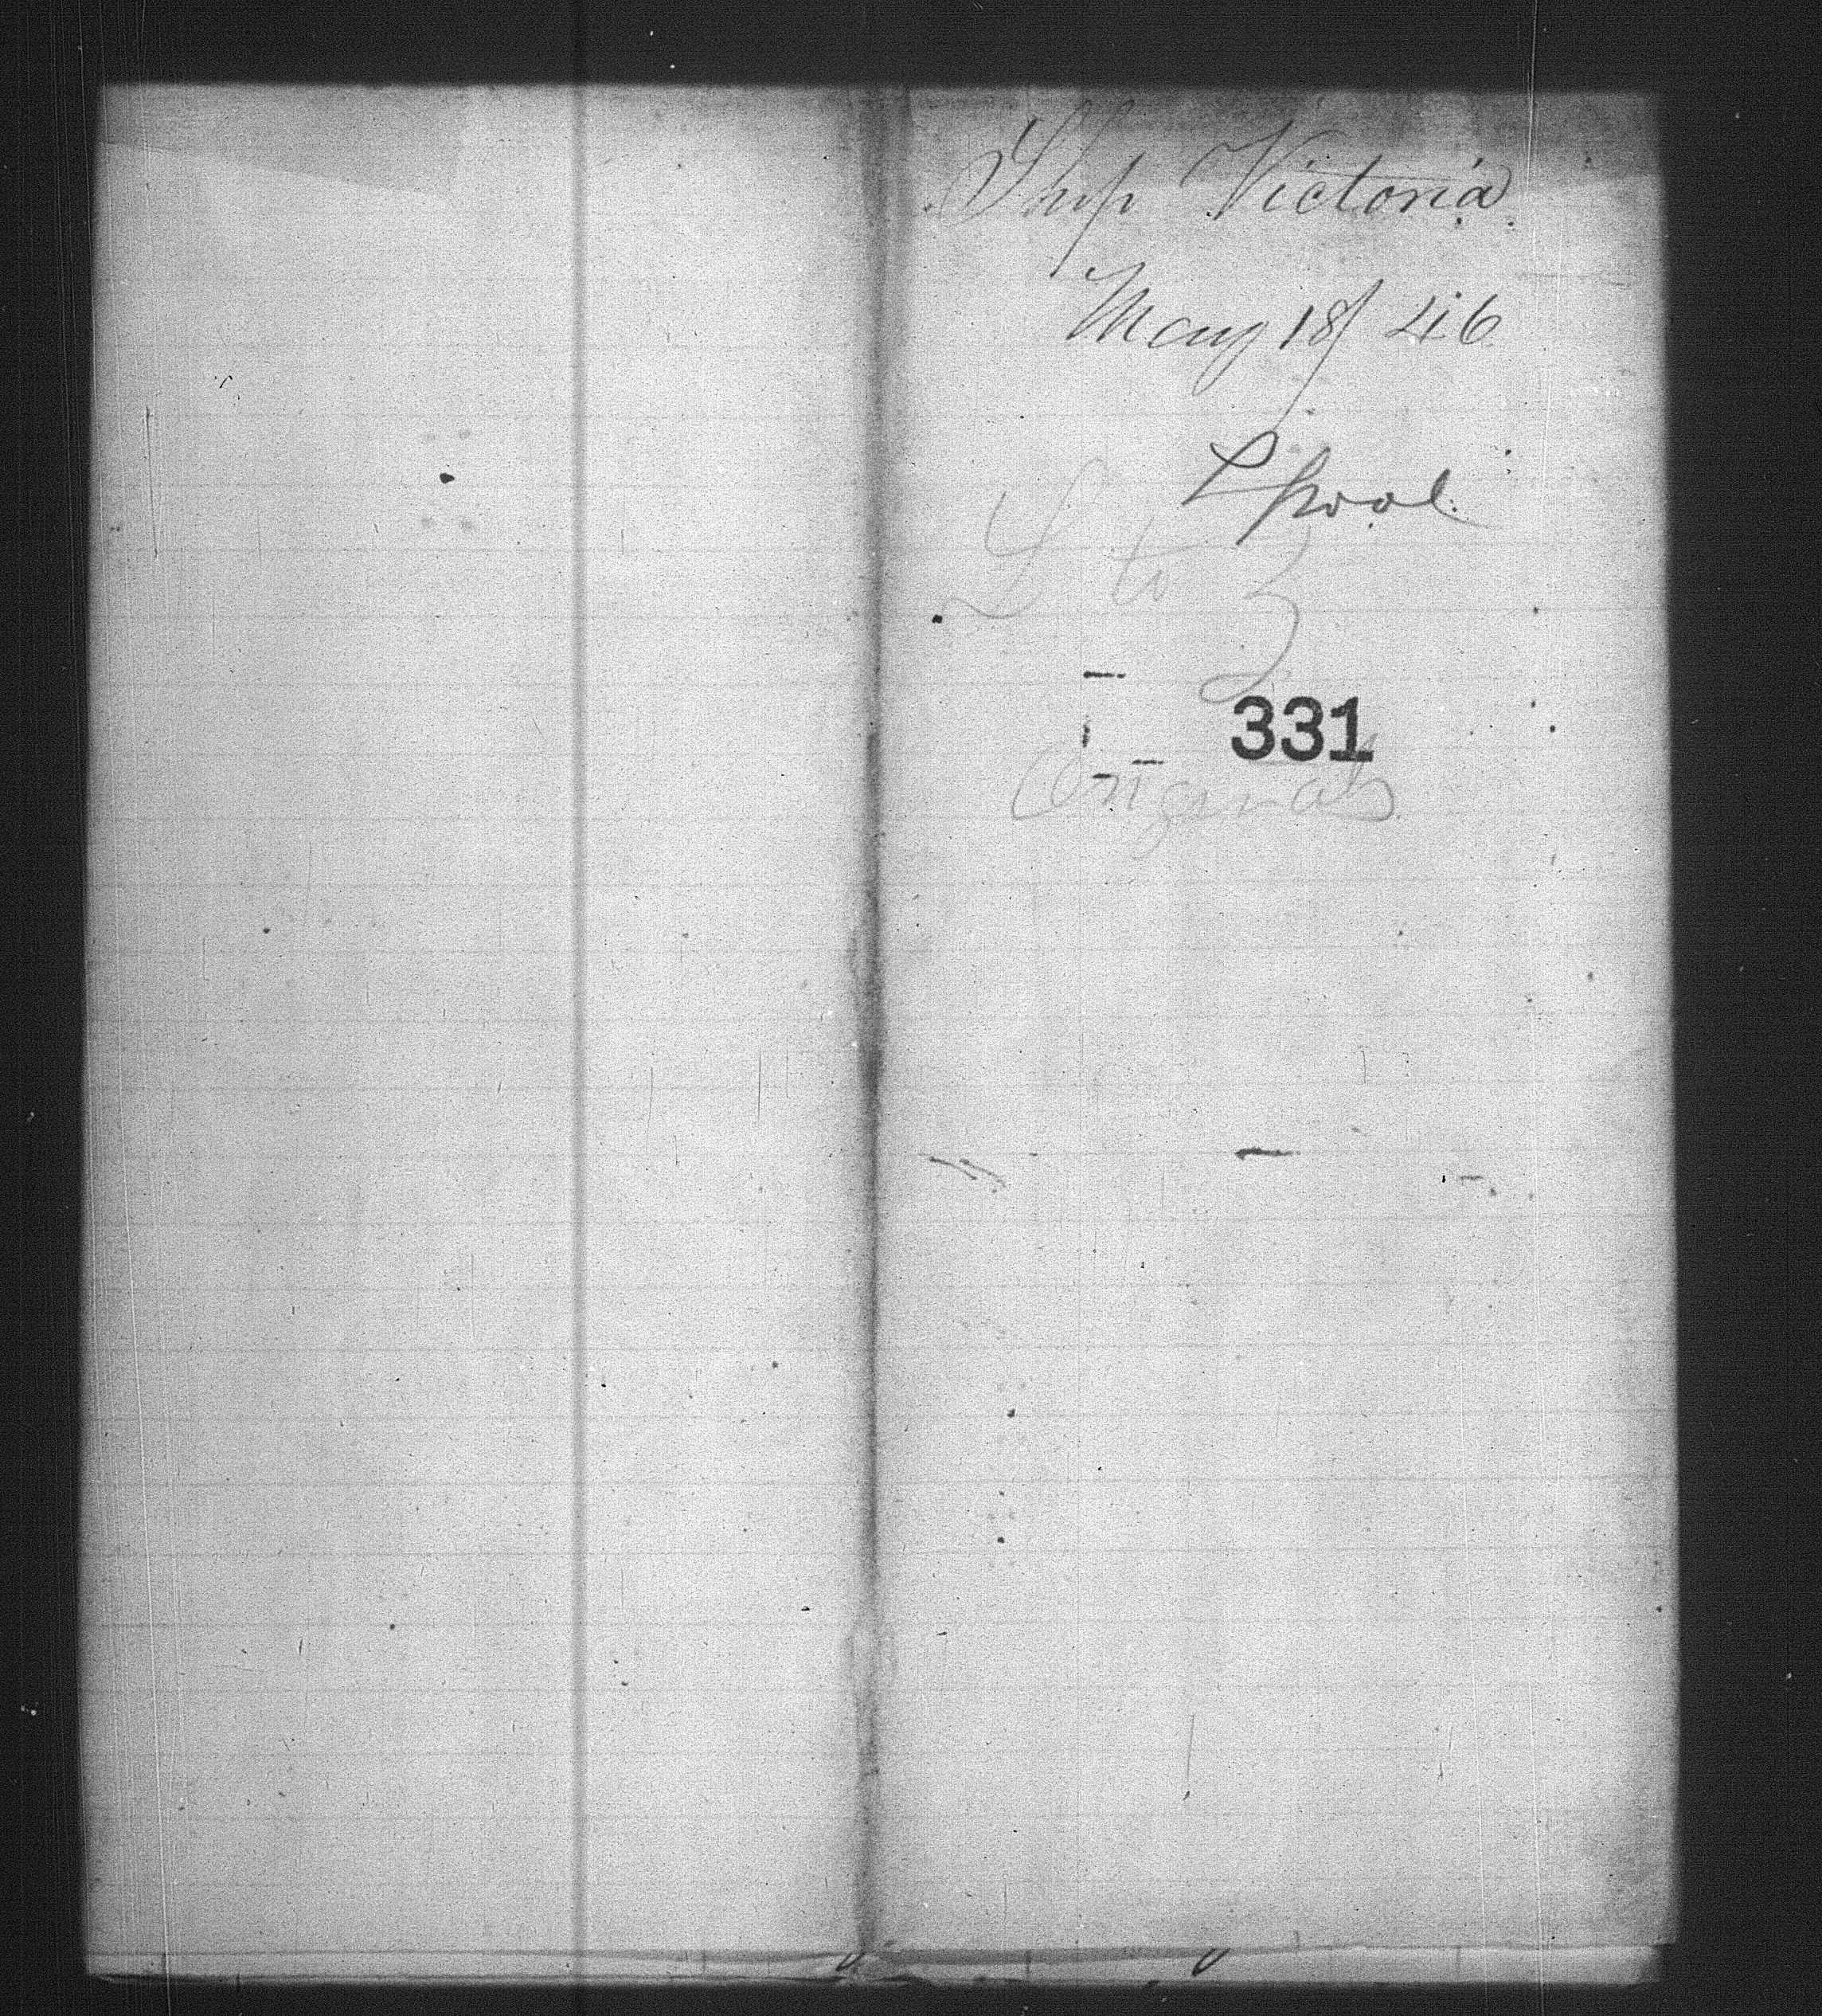 Ship Victoria
May 18/46
Lpool.
L to Z
331
Originals